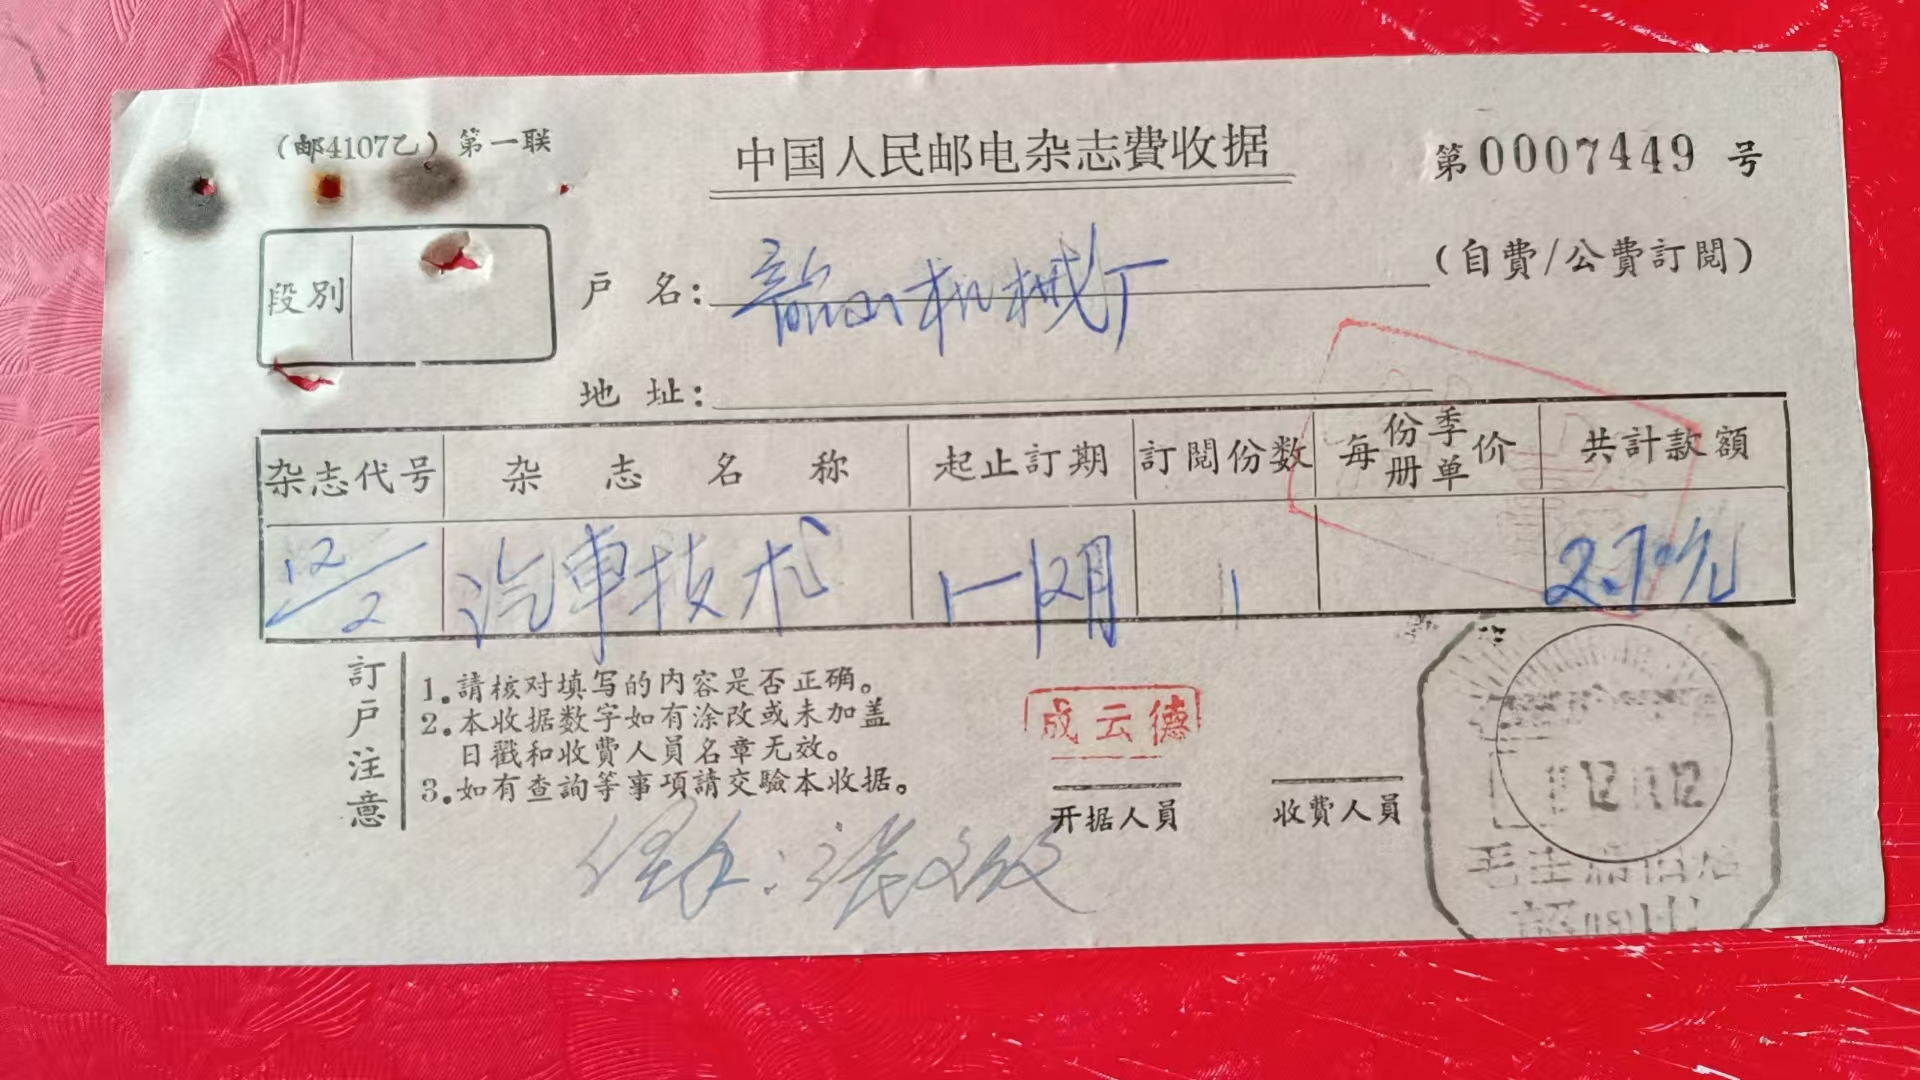 (邮4107乙) 第一联
中国人民邮电杂志費收据
第0007449号
(自費/公費訂閱)
段别
户名: 韶山机械厂
地址:
杂志代号 杂志名称 起止訂期 訂閱份数 每份季册单价 共計款額
12/2 汽車技术 1-12月 1 2.70元
訂户注意
1.請核对填写的内容是否正确。
2.本收据数字如有涂改或未加盖
日戳和收費人員名章无效。
3.如有查詢等事項請交驗本收据。
成云德
开据人員
收費人員
经手:张文
毛主席旧居
韶山